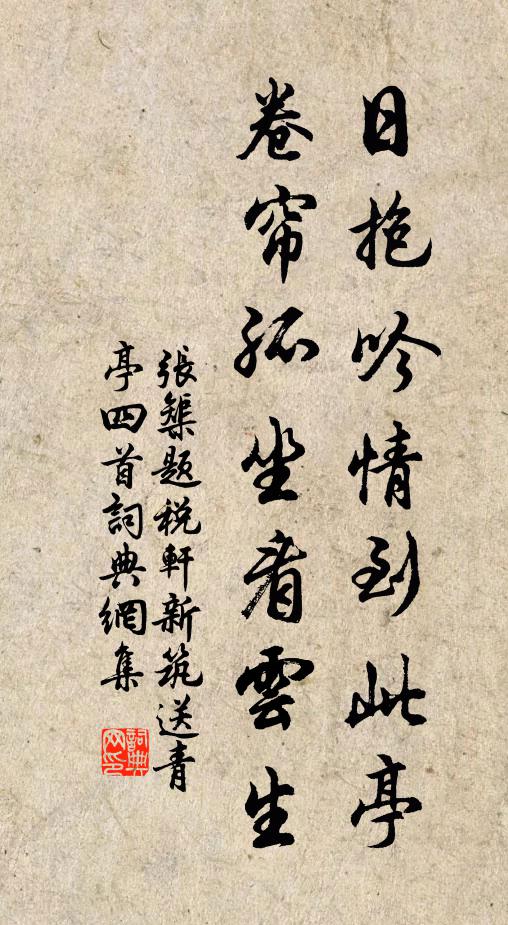 日抱吟情到此亭
卷帘孤坐看雲生
張榘題税軒新筑送青
亭四首詞典網集
詞典网印